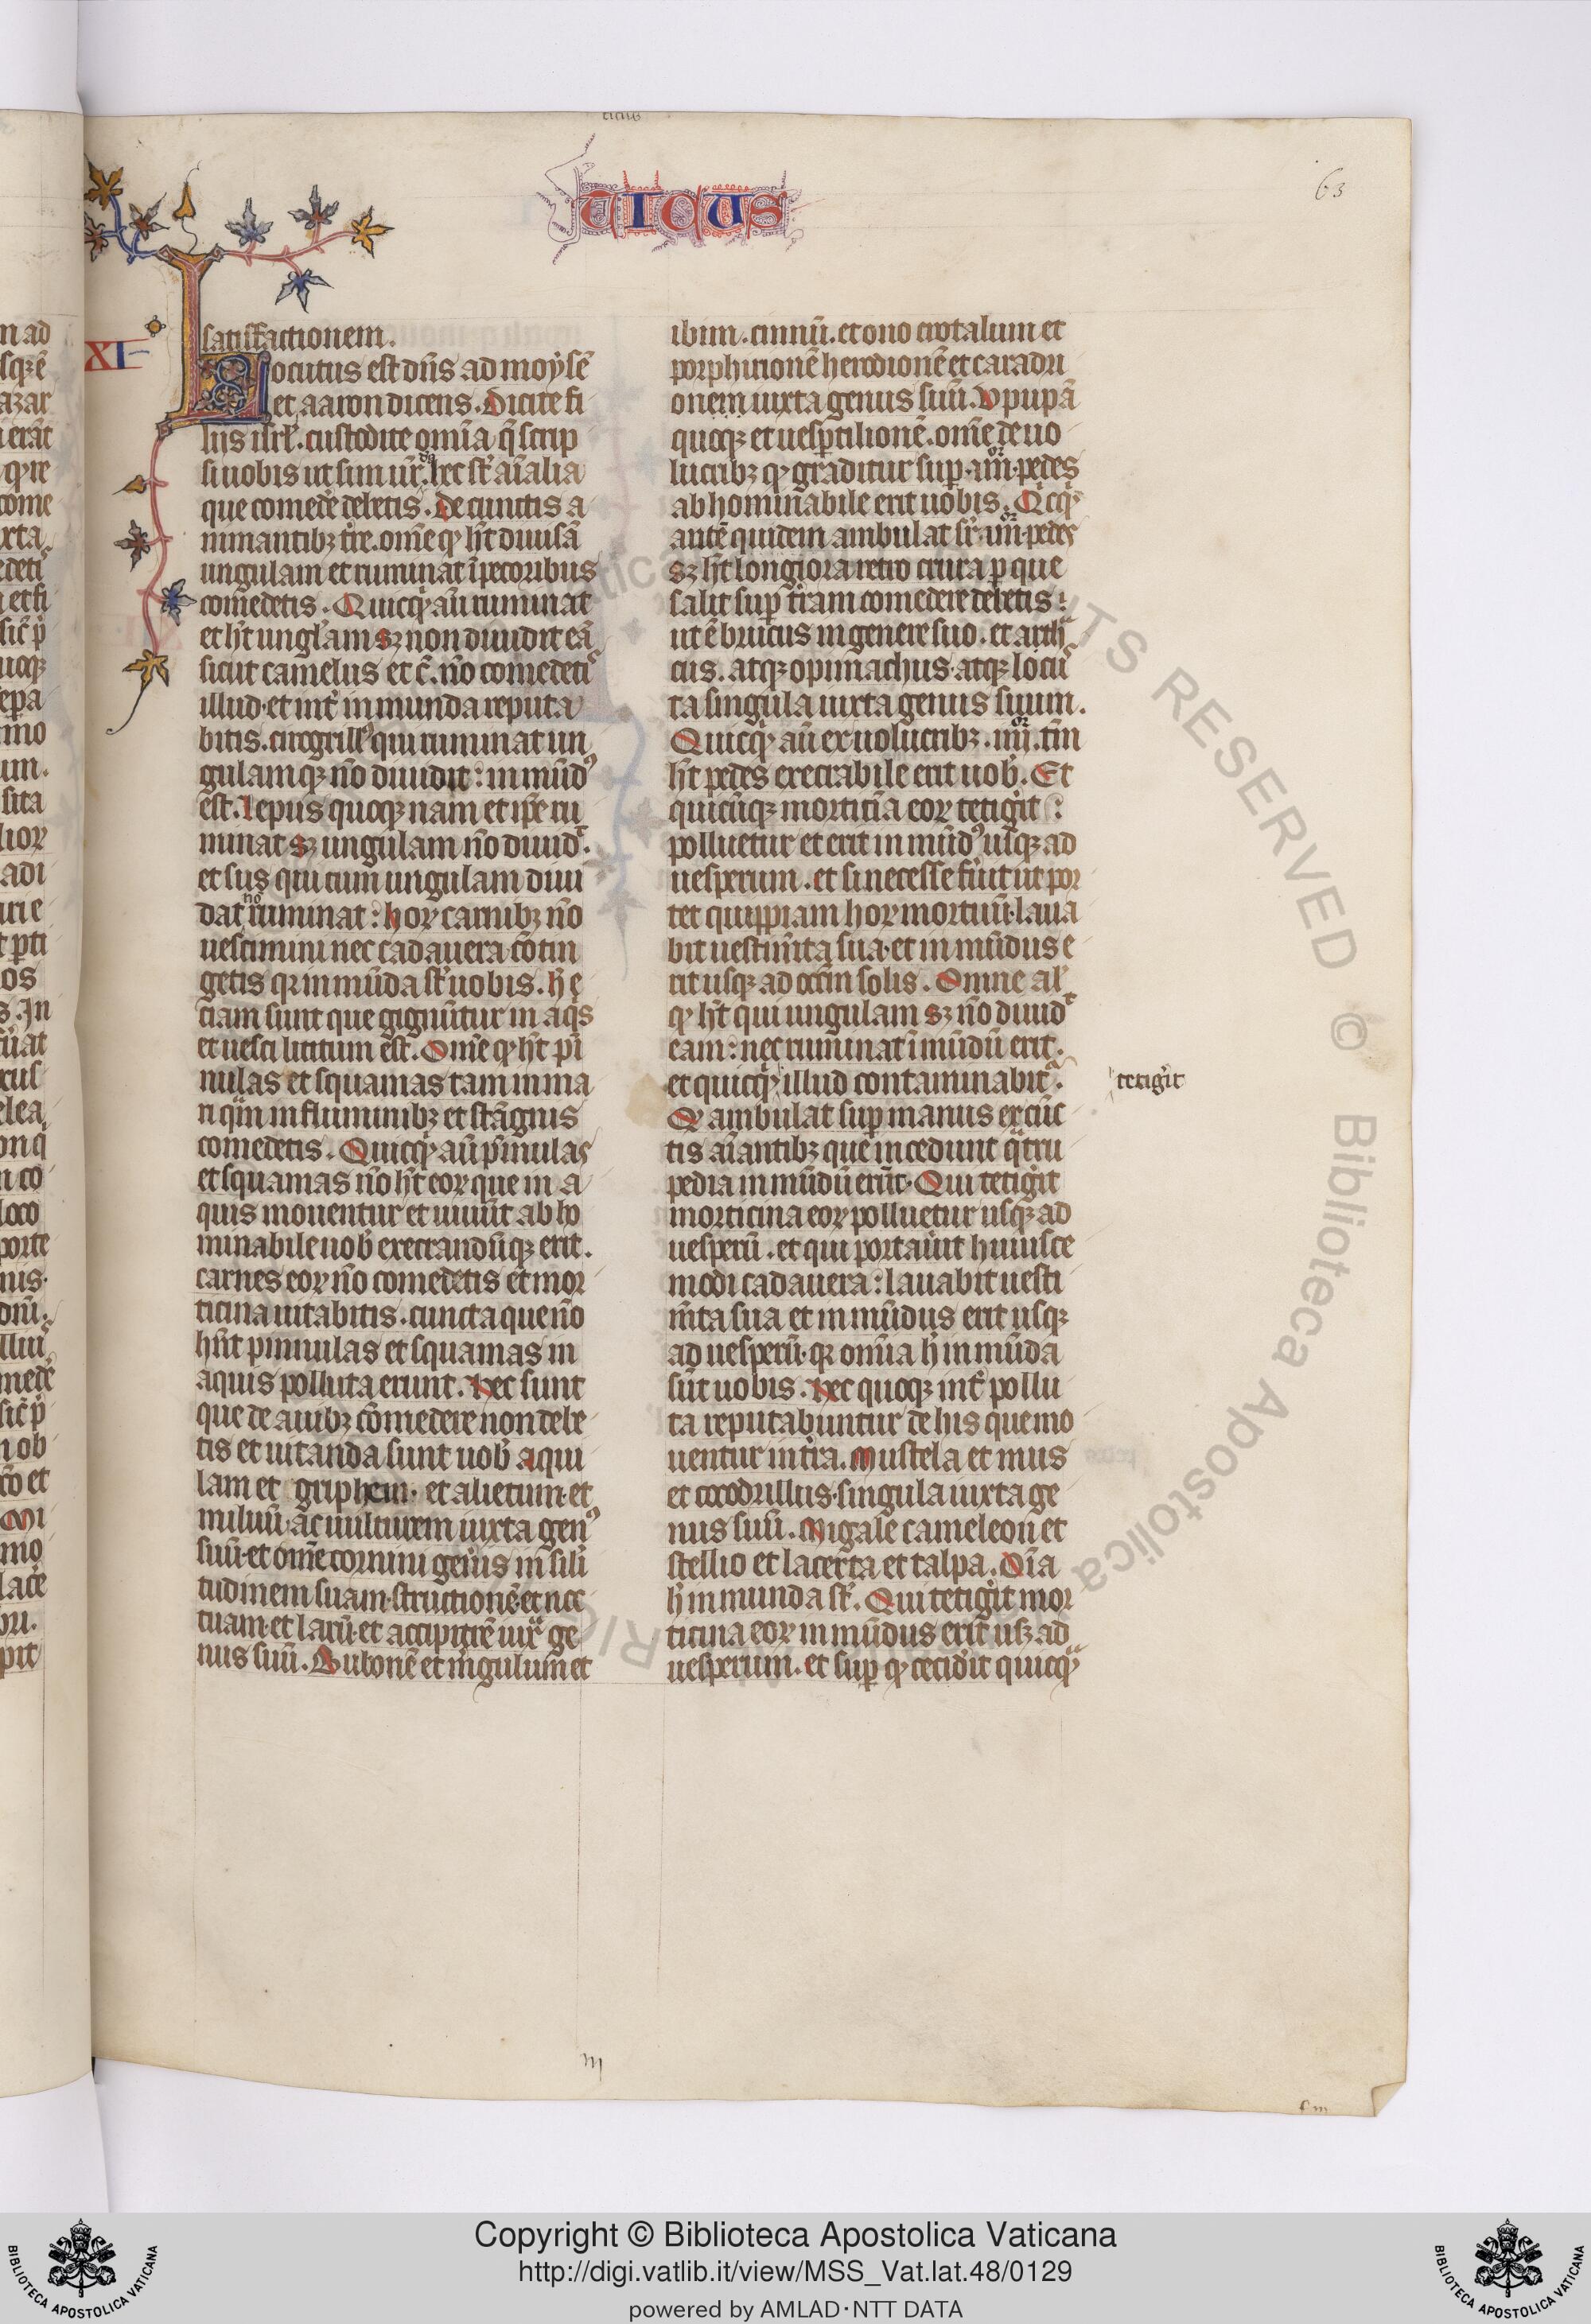 uticus
63
XI
satisfactionem.
Locutus est dn̄s ad moẏsē
et aaron dicens. Dicite fi
liis isrl̄. custodite om̄ia q̄ scrip
si uobis ut sim ur̄. hec st̄ aīalia
que comede̾ debetis. De cunctis a
nimantibꝫ tr̄e. om̄e qͥ hʼt diuisā
ungulam et ruminat ī pecoribus
comedetis. Quicqͥ aū ruminat
et hʼt ungl̓am sꝫ non diuidit eā
sicut camelus et c̄. nō comedetiˢ
illud. et int̾ inmunda reputa
bitis. cirogrillꝰ qui ruminat un
gulamqꝫ nō diuidit : inmūdꝰ
est. Lepus quoqꝫ nam et ip̄e ru
minat sꝫ ungulam nō diuidᵗ.
et sus qui cum ungulam diui
dat nō ruminat : hoꝝ carnibꝫ nō
uescimini nec cadauera cōtin
getis qꝛ inmūda st̄ uobis. h̄ e
ciam sunt que gignūtur in aqͥs
et uesci licitum est. Om̄e qͥ hʼt pī
nulas et squamas tam in ma
ri qͣm in fluminibꝫ et stāgnis
comedetis. Quicqͥ aū pīnulas
et squamas nō hʼt eoꝝ que in a
quis mouentur et uiuūt abho
minabile uob̾ execrandūqꝫ erit.
carnes eoꝝ nō comedetis et mor
ticina uitabitis. cuncta que nō
hn̄t pinnulas et squamas in
aquis polluta erunt. Hec sunt
que de auibꝫ cōmedere non debe
tis et uitanda sunt uob̾ aqui
lam et griphem. et alietum. et
miluū. ac uulturem iuxta genꝰ
suū. et om̄e coruini gen̾is in sili
tudinem suam. structionē. et noc
tuam. et larū. et accipitrē iuxͣ ge
nus suū. Bubonē et m̾gulum et
ibim. cinnū. et onocrotalum et
porphirionē herodionē et caradri
onem iuxta genus suū. Vpupā
quoqꝫ et uesp̱tilionē. om̄e de uo
lucribꝫ qͥ graditur sup̱ .iiijᵒʳ. pedes
abhominabile erit uobis. Qͥcqͥ
autē quidem ambulat sr̄ .iiijᵒʳ. pedes
sꝫ hʼt longiora retro crura p̱ que
salit sup̱ tr̄am comedere debetis :
ut ē brucus in genere suo. et atthͣ
cus. atqꝫ opimachus. atqꝫ locuˢ
ta singula iuxta genus suum.
Quicqͥ aū ex uolucribꝫ .iiijᵒʳ. tm̄
hʼt pedes execrabile erit uob̾. Et
quicūqꝫ morticīa eoꝝ tetigit :
polluetur et erit inmūdꝰ usqꝫ ad
uesperum. et si necesse fu̾it ut por
tet quippiam hoꝝ mortuū. laua
bit uestim̄ta sua. et inmūdus e
rit usqꝫ ad occm̄ solis. Omne al̓
qͥ hʼt qui ungulam sꝫ nō diuidᵗ
eam : nec ruminat ī mūdū erit.
et quicqͥ illud contaminabitͬ.
tetigͥit
Qͥ ambulat sup̱ manus ex cūc
tis aīantibꝫ que incedunt qͣtru
pedia inmūdū erūt. Qui tetigͥit
morticina eoꝝ polluetur usqꝫ ad
uesperū. et qui portau̾it huiusce
modi cadauera : lauabit uesti
m̄ta sua et inmūdus erit usqꝫ
ad uesperū. qꝛ om̄ia h̾ inmūda
sūt uobis. Hec quoqꝫ int̾ pollu
ta reputabuntur de his que mo
uentur in tr̄a. Mustela et mus
et cocodrillus. singula iuxta ge
nus suū. Migale cameleon et
stellio et lacerta et talpa. Oīa
h̾ inmunda st̄. Qui tetigͥit mor
ticina eoꝝ inmūdus erit usqꝫ ad
uesperum. et sup̱ qͥ cecid̾it quicqͣ
BIBLIOTECA APOSTOLICA VATICANA
Copyright © Biblioteca Apostolica Vaticana
http://digi.vatlib.it/view/MSS_Vat.lat.48/0129
powered by AMLAD･NTT DATA
BIBLIOTECA APOSTOLICA VATICANA